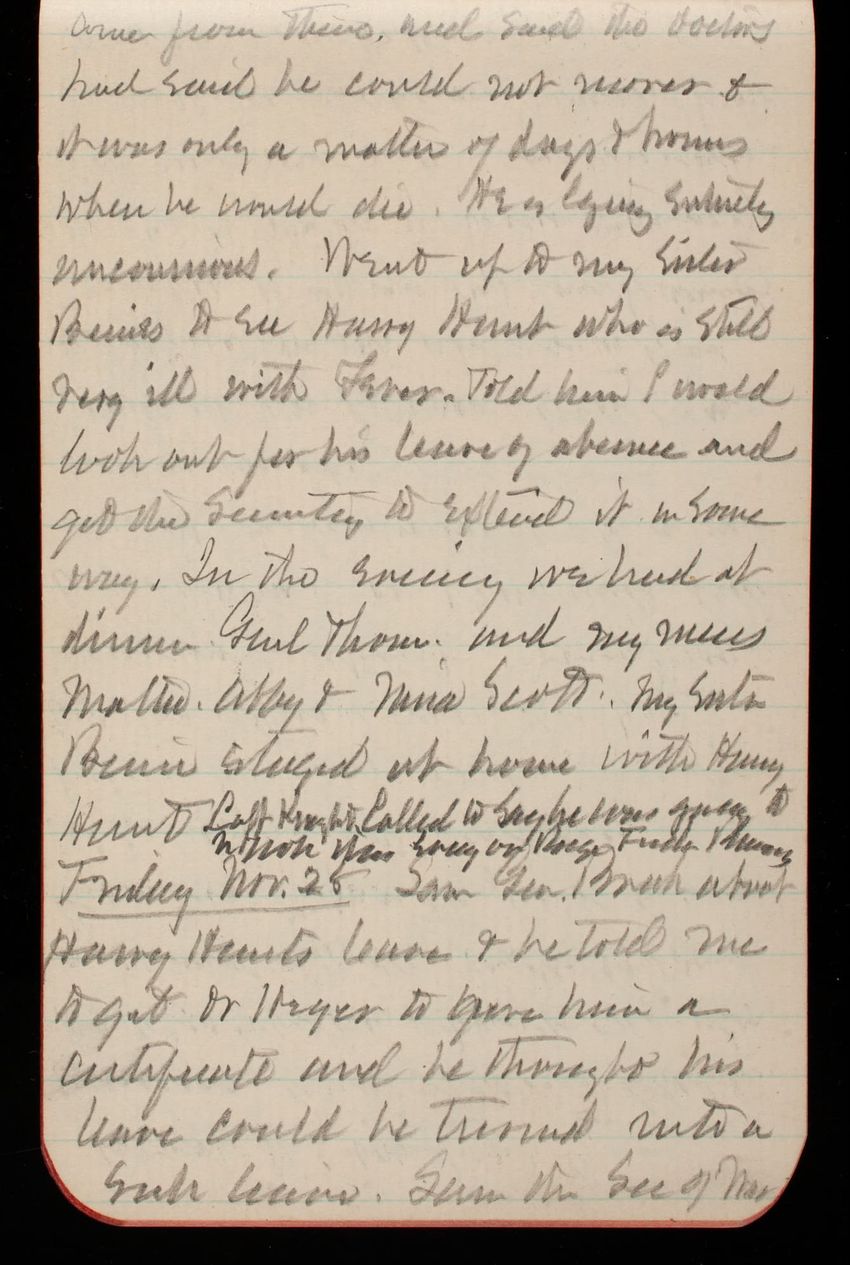 come from there, and said the doctors
had said he could not recover &
it was only a matter of days & hours
when he would die. He is lying entirely
unconscious. Went up to my Sister
to see Harry Hunt who is still
very ill with Fever. Told him I would
look out for his leave of absence and
get the Secretary to extend it in some
way. In the evening we had at
dinner Genl Thom. and my nieces
Mattie. Abby & Nina Scott. My Sister
stayed at home with Harry
Hunt Capt Knight Called to say he was going to
Friday Nov. 28 Saw Gen. Breck about
Harry Hunts leave & he told me
to get Dr Heger to give him a
certificate and he thought his
leave could be turned into a
Sick leave. Saw the Sec of War